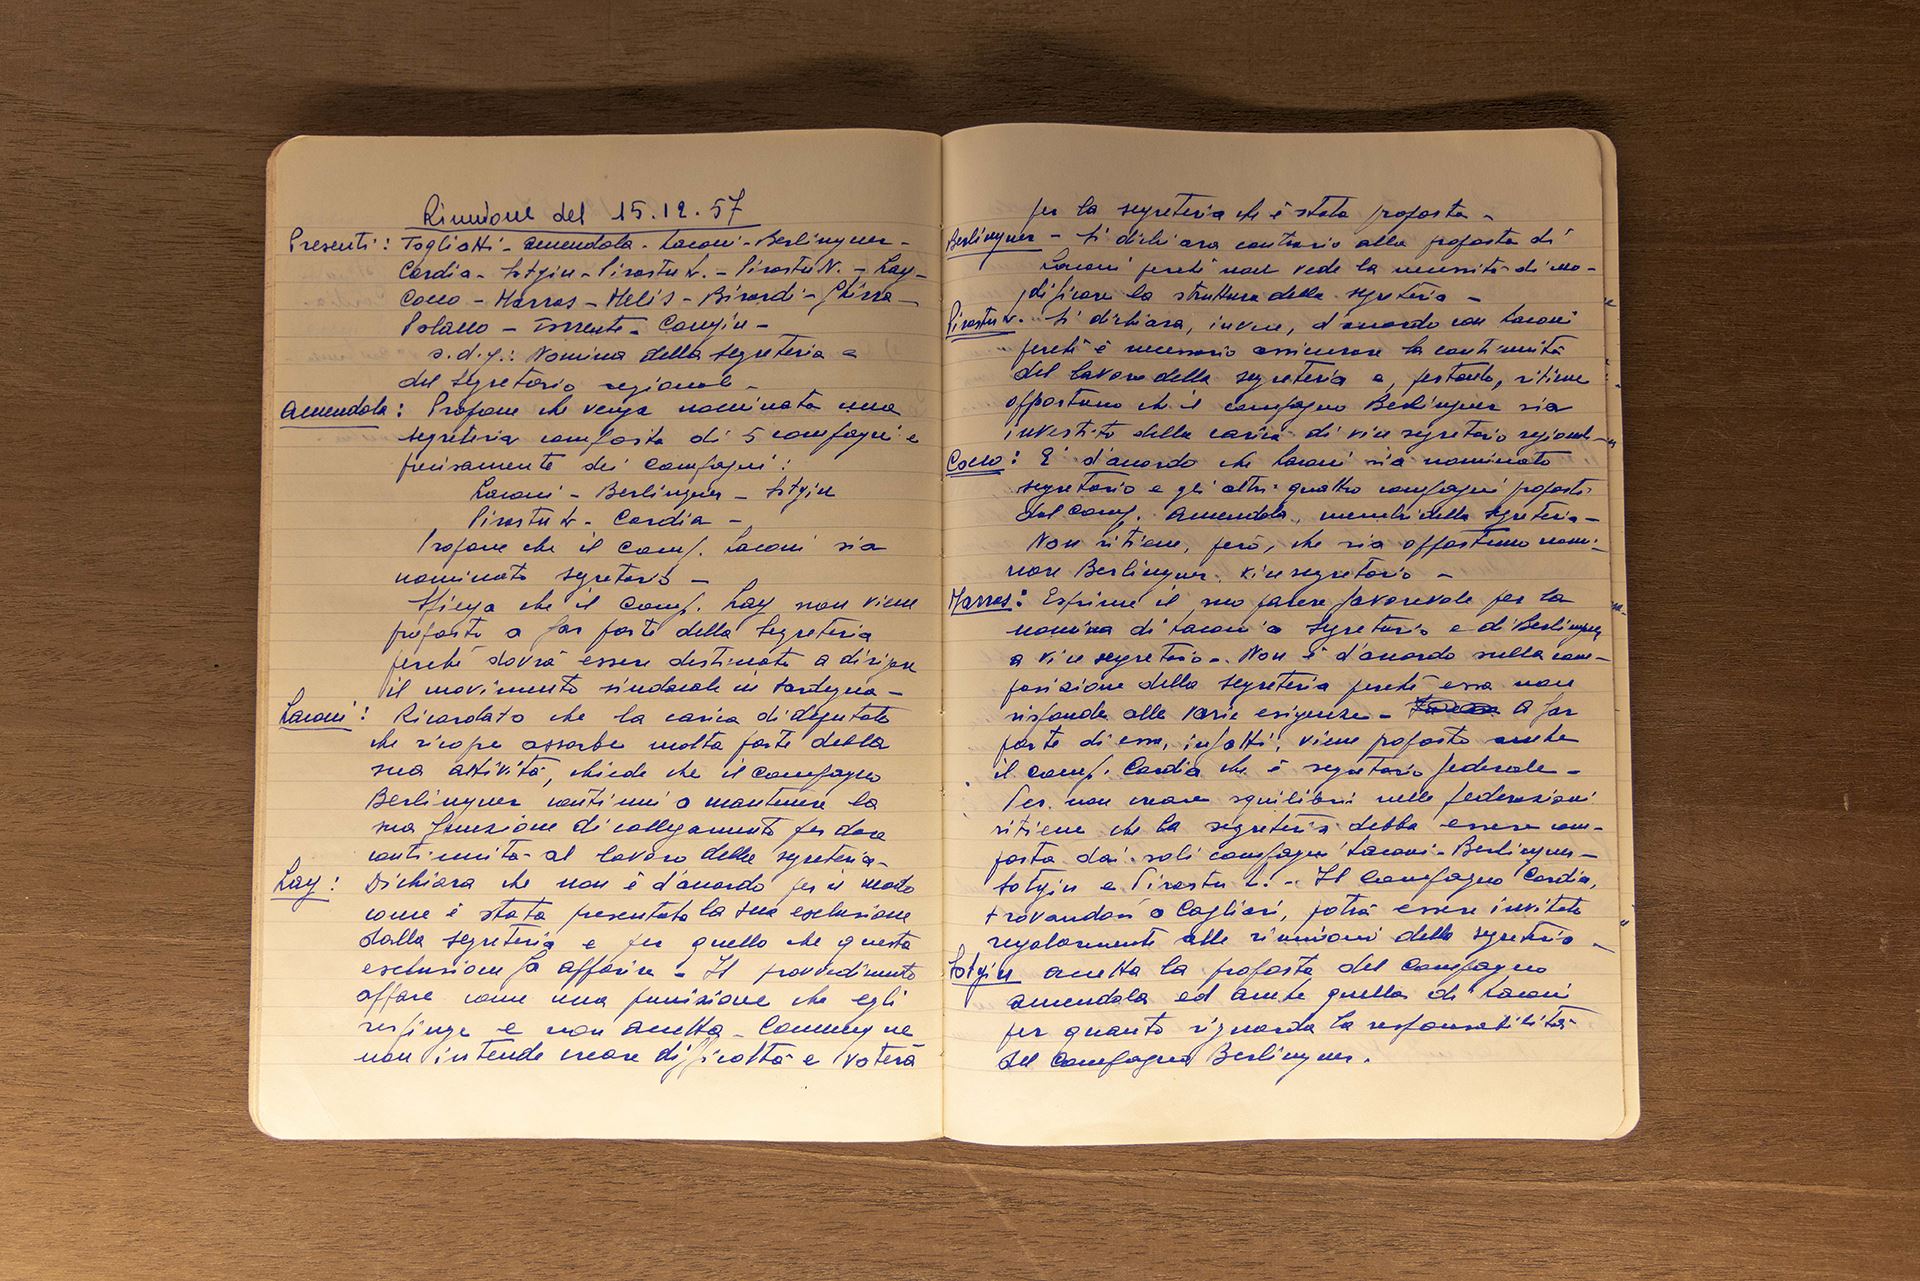 Riunione del 15.12.57
Presenti: Togliatti - Amendola - Laconi - Berlinguer -
Cardia - Sotgiu - Pirastu L. - Pirastu N. - Lay -
Cocco - Marras - Melis - Birardi - Ghirra -
Polano - Torrente - Congiu -
o.d.g.: Nomina della segreteria e
del segretario regionale -
Amendola: Propone che venga nominata una
segreteria composta di 5 compagni e
precisamente dei compagni:
Laconi - Berlinguer - Sotgiu
Pirastu L. - Cardia -
Propone che il comp. Laconi sia
nominato segretario -
Spiega che il comp. Lay non viene
proposto a far parte della segreteria
perché dovrà essere destinato a dirigere
il movimento sindacale in Sardegna -
Laconi: Ricordato che la carica di deputato
che ricopre assorbe molta parte della
sua attività, chiede che il compagno
Berlinguer continui a mantenere la
sua funzione di collegamento per dare
continuità al lavoro della segreteria -
Lay: Dichiara che non è d'accordo per il modo
come è stata presentata la sua esclusione
dalla segreteria e per quello che questa
esclusione fa apparire - Il provvedimento
appare come una punizione che egli
respinge e non accetta - Comunque
non intende creare difficoltà e voterà
per la segreteria che è stata proposta -
Berlinguer - Si dichiara contrario alla proposta di
Laconi perché non vede la necessità di mo-
dificare la struttura della segreteria -
Pirastu L. - Si dichiara, invece, d'accordo con Laconi
perché è necessario assicurare la continuità
del lavoro della segreteria e, pertanto, ritiene
opportuno che il compagno Berlinguer sia
investito della carica di vice segretario regionale -
Cocco: E' d'accordo che Laconi sia nominato
segretario e gli altri quattro compagni proposti
dal comp. Amendola, membri della segreteria -
Non ritiene, però, che sia opportuno nomi-
nare Berlinguer, vice segretario -
Marras: Esprime il suo parere favorevole per la
nomina di Laconi a segretario e di Berlinguer
a vice segretario - Non è d'accordo sulla com-
posizione della segreteria perché essa non
risponde alle varie esigenze - A far
parte di essa, infatti, viene proposto anche
il comp. Cardia che è segretario federale -
Per non creare squilibri nelle federazioni
ritiene che la segreteria debba essere com-
posta dai soli compagni Laconi - Berlinguer -
Sotgiu e Pirastu L. - Il compagno Cardia,
trovandosi a Cagliari, potrà essere invitato
regolarmente alle riunioni della segreteria -
Sotgiu accetta la proposta del compagno
Amendola ed anche quella di Laconi
per quanto riguarda la responsabilità
del compagno Berlinguer.